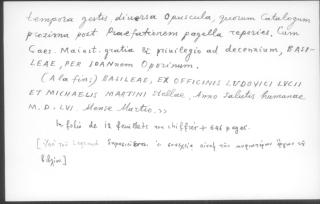 tempora gestis, diversa Opuscula, quorum Catalogum
proxima post Praefationem pagella reperies. Cum
Caes. Maiest. gratia & privilegio ad decennium, BASI-
LEAE, PER IOANNEM Oporinum.
(A la fin;) BASILEAE, EX OFFICINIS LUDOVICI LUCII
ET MICHAELIS MARTINI Stellae, Anno Salutis humanae
M.D.LVI. Mense Martio.>>
In folio de 12 feuillets non chiffrés + 646 pages.
[Υπὸ τοῦ Legrand